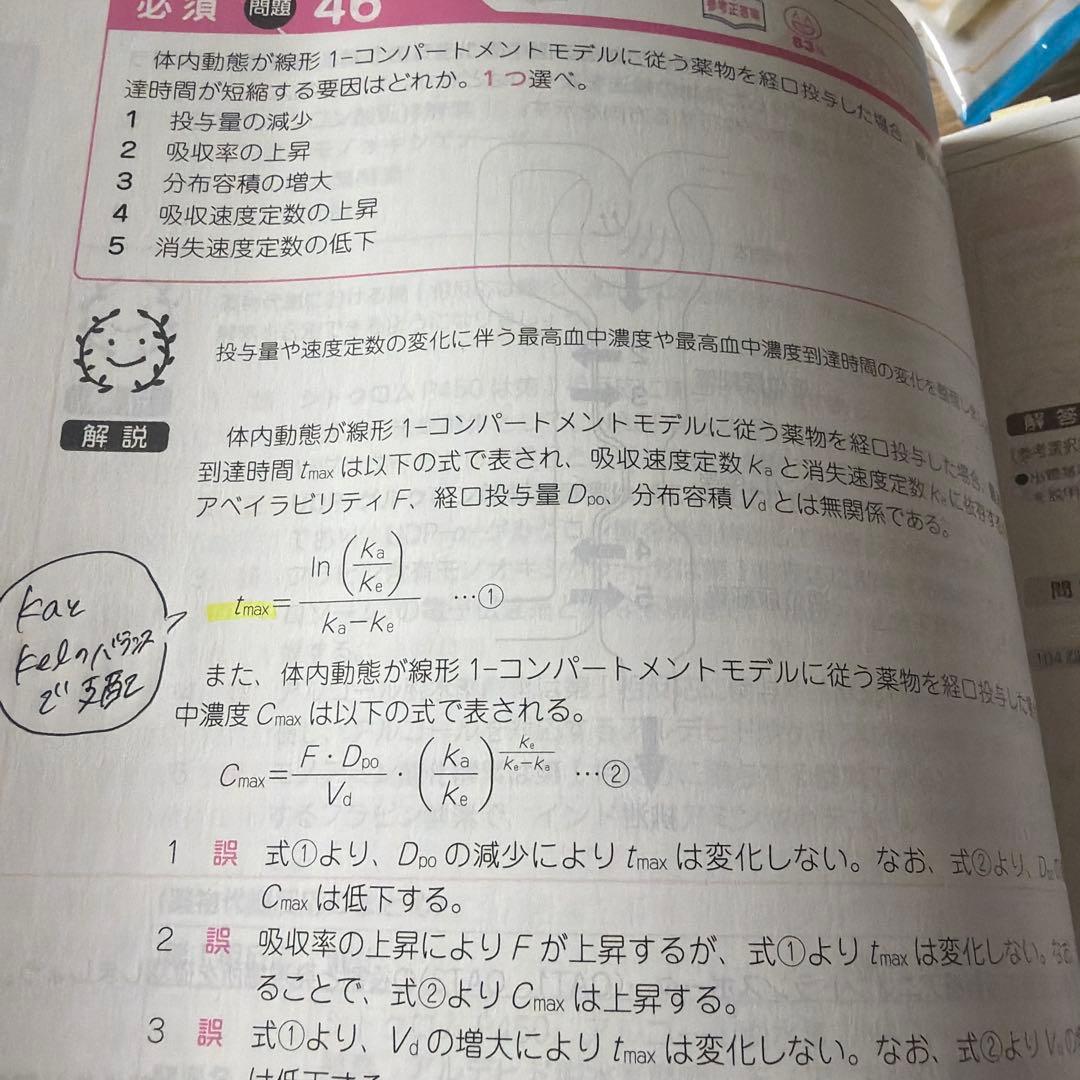 必須 問題 46
参考正答率
83%
体内動態が線形1-コンパートメントモデルに従う薬物を経口投与した場合、
達時間が短縮する要因はどれか。1つ選べ。
1 投与量の減少
2 吸収率の上昇
3 分布容積の増大
4 吸収速度定数の上昇
5 消失速度定数の低下
投与量や速度定数の変化に伴う最高血中濃度や最高血中濃度到達時間の変化を整理しま
解説
体内動態が線形1-コンパートメントモデルに従う薬物を経口投与した場合、
到達時間 tmax は以下の式で表され、吸収速度定数 ka と消失速度定数 ke に依存する
アベイラビリティ F、経口投与量 Dpo、分布容積 Vd とは無関係である。
tmax = ln(ka/ke) / (ka−ke) …①
kaと
kelのバランス
で支配
また、体内動態が線形1-コンパートメントモデルに従う薬物を経口投与した
中濃度 Cmax は以下の式で表される。
Cmax = F・Dpo/Vd ・ (ka/ke)^(ke/(ke−ka)) …②
1 誤 式①より、Dpo の減少により tmax は変化しない。なお、式②より、
Cmax は低下する。
2 誤 吸収率の上昇により F が上昇するが、式①より tmax は変化しない。なお
ることで、式②より Cmax は上昇する。
3 誤 式①より、Vd の増大により tmax は変化しない。なお、式②より Vd
は低下する
解答
問